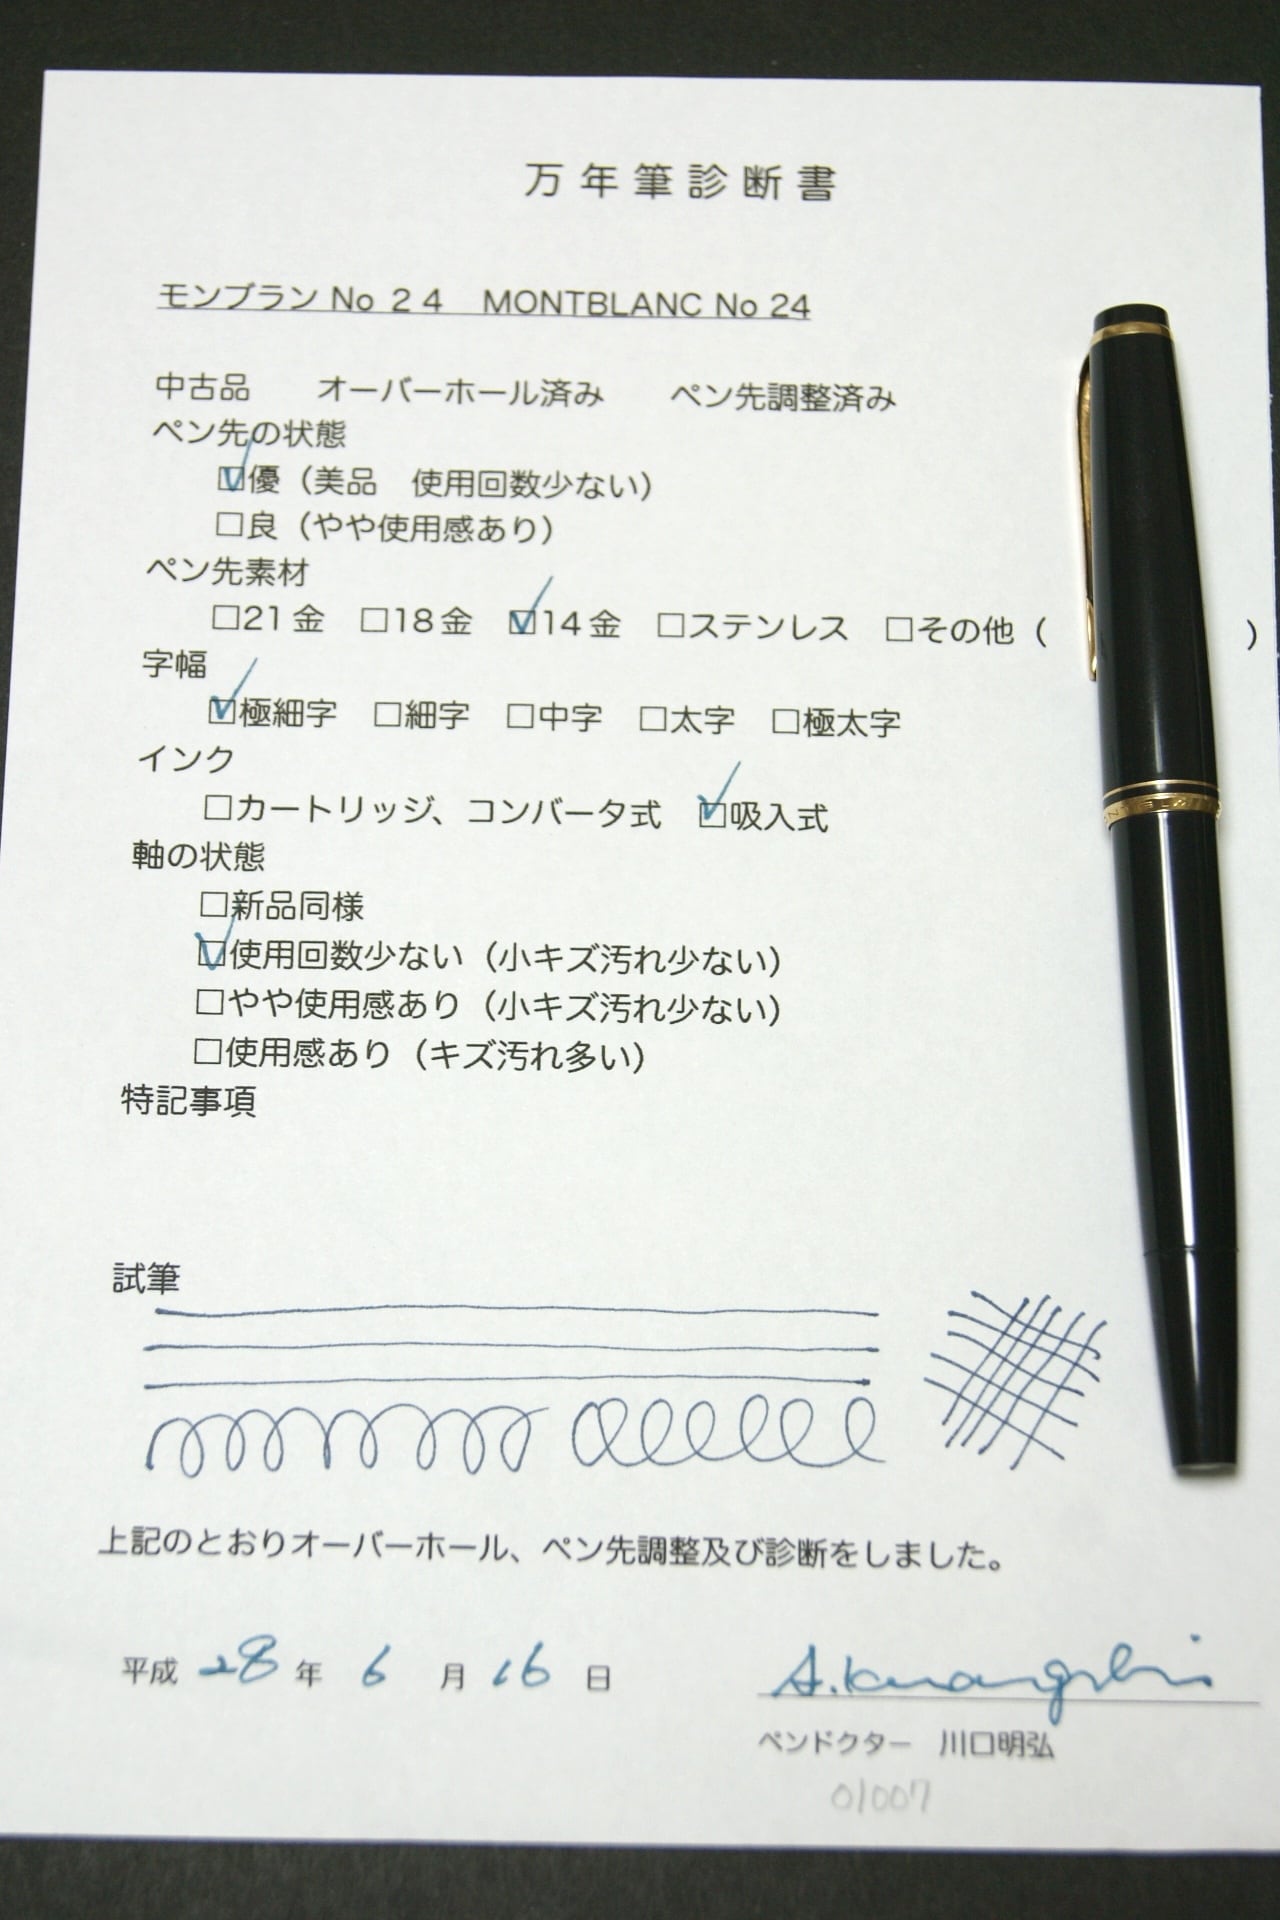 万年筆診断書
モンブラン No 24　MONTBLANC No 24
中古品　　オーバーホール済み　　ペン先調整済み
ペン先の状態
☑優（美品　使用回数少ない）
□良（やや使用感あり）
ペン先素材
□21金　□18金　☑14金　□ステンレス　□その他（　　　　　　）
字幅
☑極細字　□細字　□中字　□太字　□極太字
インク
□カートリッジ、コンバータ式　☑吸入式
軸の状態
□新品同様
☑使用回数少ない（小キズ汚れ少ない）
□やや使用感あり（小キズ汚れ少ない）
□使用感あり（キズ汚れ多い）
特記事項
試筆
上記のとおりオーバーホール、ペン先調整及び診断をしました。
平成 28 年 6 月 16 日
ペンドクター　川口明弘
01007